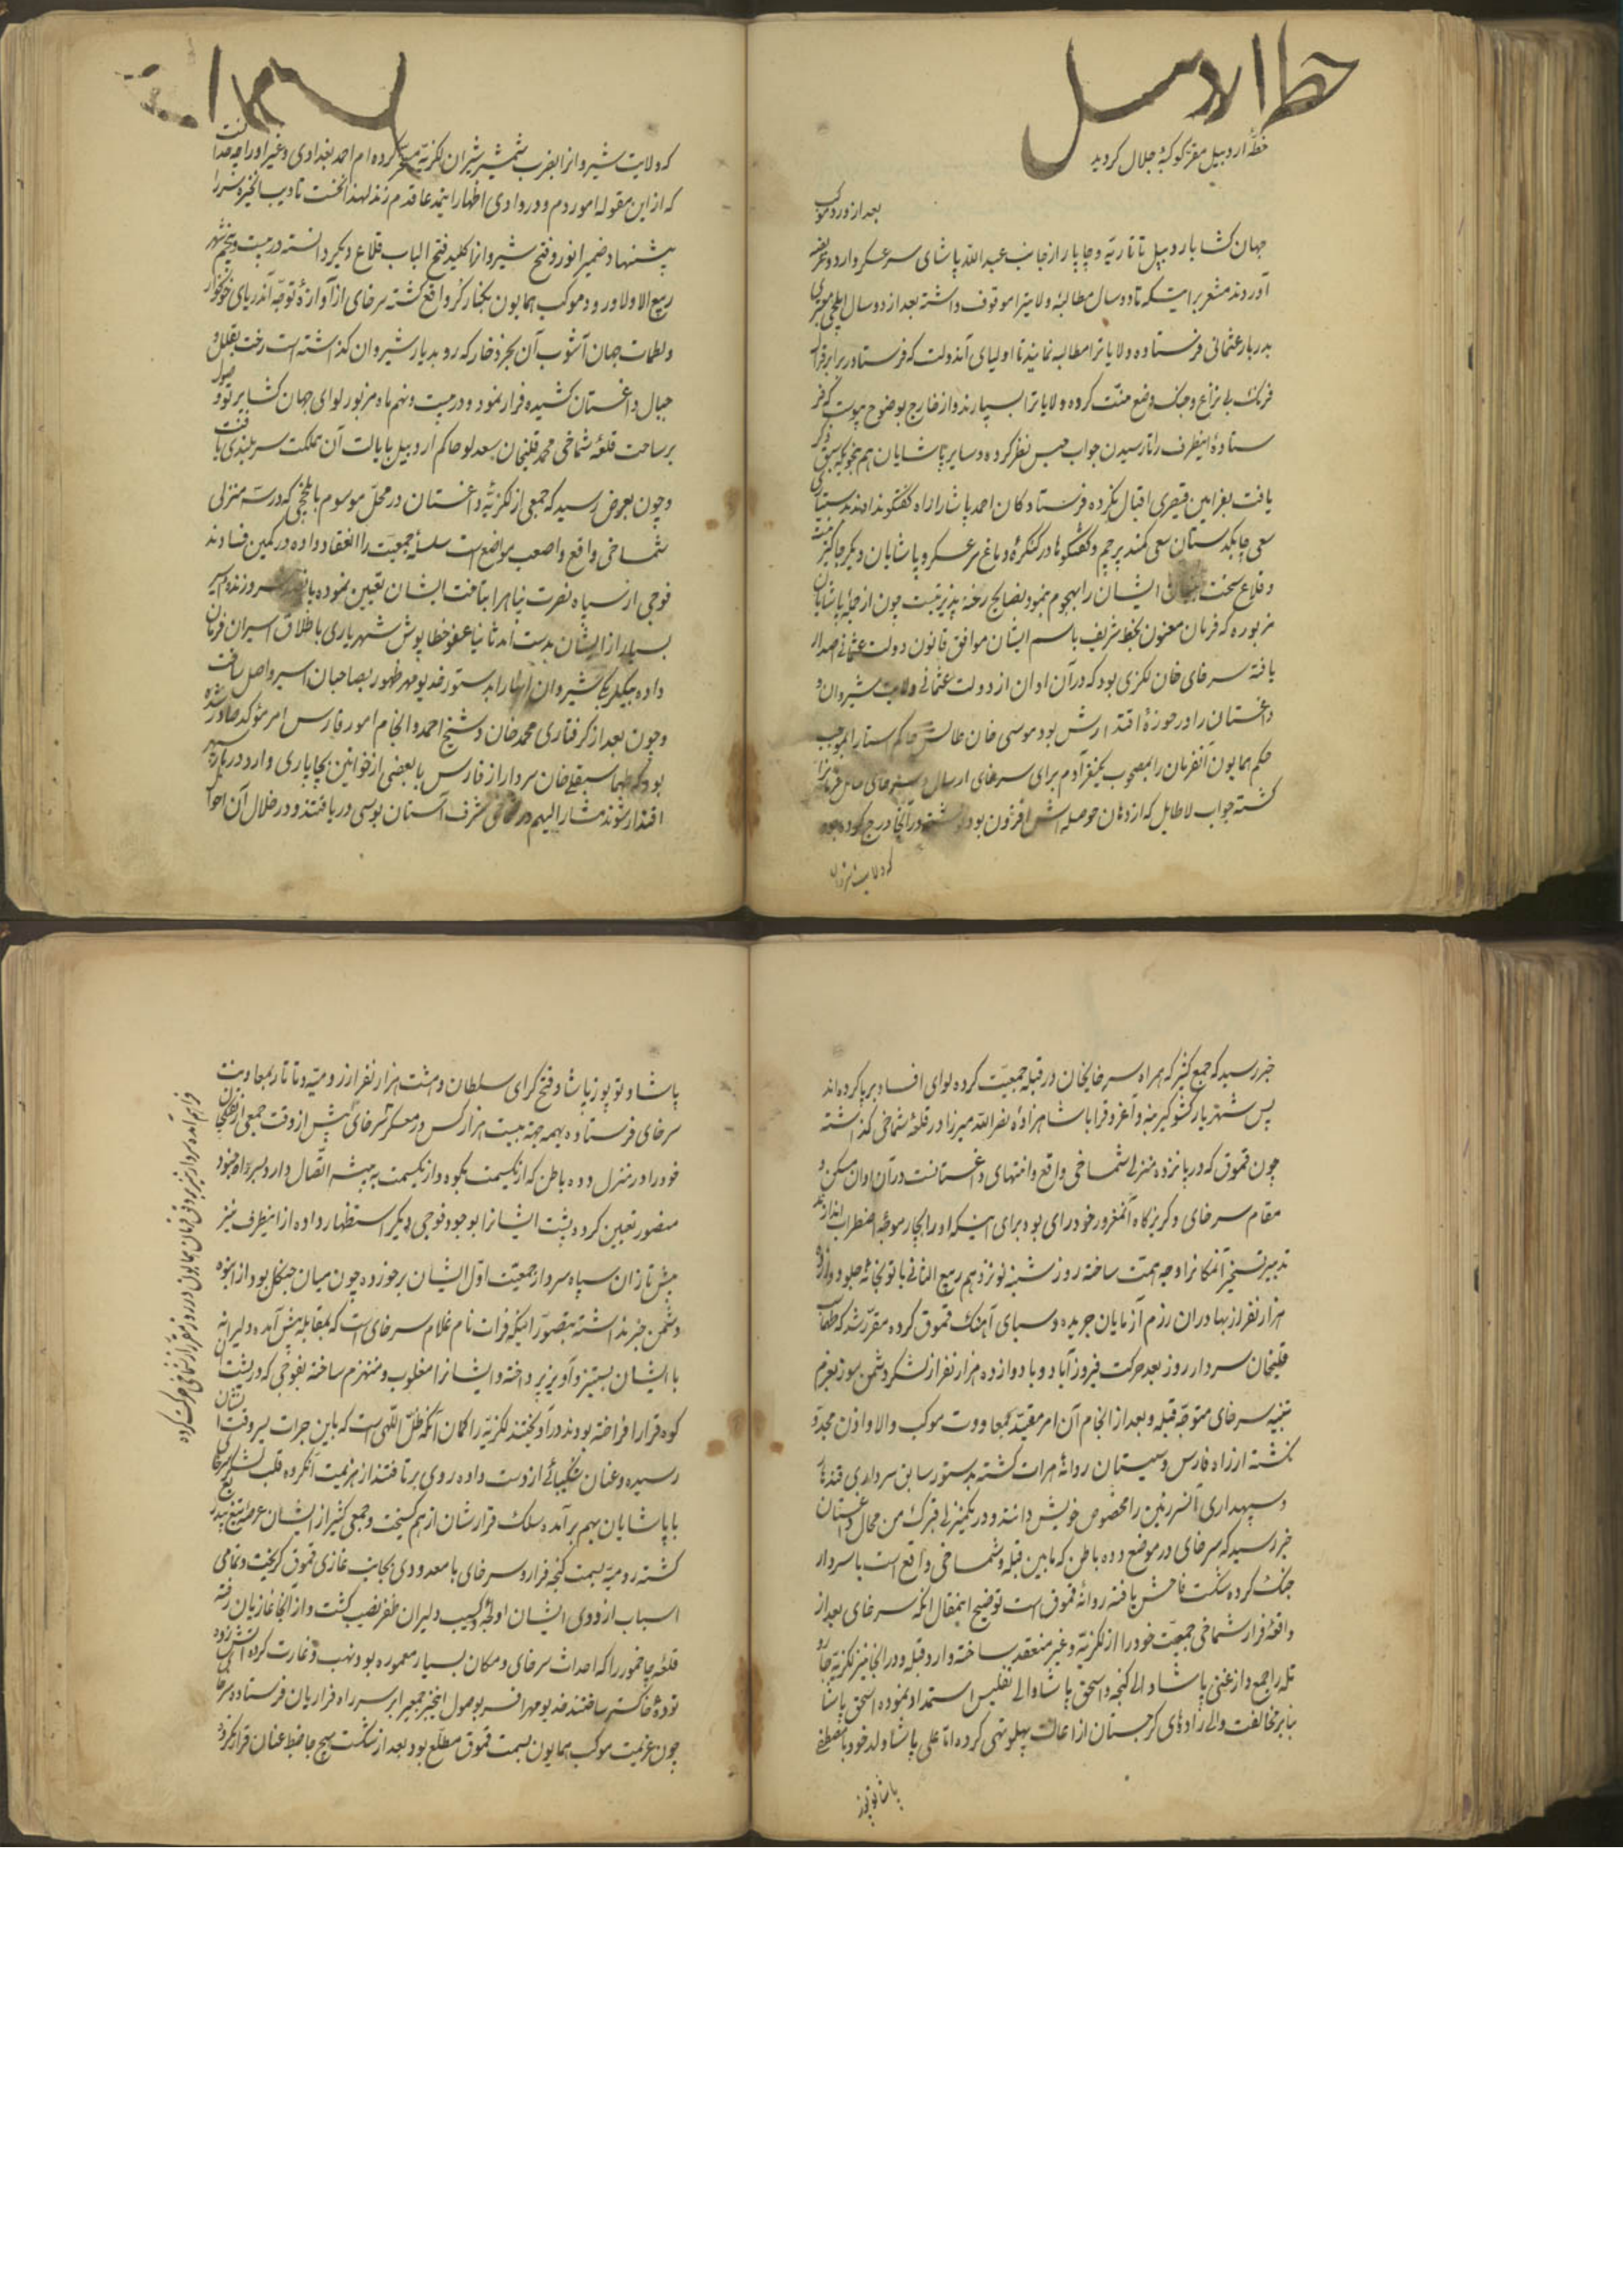 خطهٔ اردبیل مقر کوکبهٔ جلال کردید
بعد از ورود موکب
جهان کشا باردبیل تاتاریه و چاپار از جانب عبد الله پاشای سر عسکر وارد و عریضه
آوردند مشعر براینکه تا دو سال مطالبهٔ ولایترا موقوف داشته بعد از دو سال ایلچی
بدربار عثمانی فرستاده ولایاترا مطالبه نمایند تا اولیای آندولت که فرستادر برابر
فرنک بی نزاع و جنک وضع منت کرده ولایاترا بسپارند و از خارج بوضوح پیوست که
ستادهٔ اینطرف را تا رسیدن جواب حبس نظر کرده و سایر پاشایان هم بنحویکه سبق ذکر
یافت بفرامین قیصری اقبال نکرده فرستادکان احمد پاشا را راه گفتگو نداده اند
سعی چابکدستان سعی کمند پرچم و گفتگوها در کنکرهٔ دماغ سر عسکر و پاشایان دیکر جاگیر نیست
و قلاع سخت ایشان را بهجوم نصایح رخنه پذیر نیست چون از جملهٔ پاشایان
مزبوره که فرمان معنون بخط شریف باسم ایشان موافق قانون دولت عثمانی اصدار
یافته سرخای خان لکزی بود که در آن اوان از دولت عثمانی ولایت شیروان و
داغستان را در حوزهٔ اقتدارش بود موسی خان طالش حاکم استارا بموجب
حکم همایون آنفرمان را بمصحوب یکنفر آدم برای سرخای ارسال و سرخای
کشته جواب لاطایل که از دهان حوصله اش افزون بود نوشته در آنجا درج کرده بود
که ولایت شیروان
که ولایت شیروانرا بضرب شمشیر شیران لکزیه مسخر کرده ام احمد بغدادی و غیر او را چه حد است
که از این مقوله امور دم و در وادی اظهار اینمدعا قدم زند لهذا نخست تادیب آنخیره سر را
پیشنهاد ضمیر انور و فتح شیروانرا کلید فتح الباب قلاع دیکر دانسته در بیست و پنجم شهر
ربیع الاول ورود موکب همایون بکنار کر واقع کشته سرخای از آوازهٔ توجه آندریای خونخوار
ولطمات جهان آشوب آن بحر ذخار که رو بدیار شیروان کذاشته است رخت بقلل و
جبال داغستان کشیده فرار نمود و در بیست و نهم ماه مزبور لوای جهان کشا پرتو وصول
بر ساحت قلعهٔ شماخی محمد قلیخان سعدلو حاکم اردبیل بایالت آن مملکت سربلندی یافت
و چون بعرض رسید که جمعی از لکزیهٔ داغستان در محل موسوم با که در سه منزلی
شماخی واقع و اصعب مواضع است سلسلهٔ جمعیت را انعقاد داده در کمین فسادند
فوجی از سپاه نصرت پناه را بتاخت ایشان تعیین نموده
بسیار از ایشان بدست آمد ثانیا عفو خطا پوش شهریاری باطلاق اسیران فرمان
داده بیکلربیکی شیروان آنها را بدستور فدیو مهر ظهور بصاحبان اسیر واصل ساخت
و چون بعد از کرفتاری محمد خان و شیخ احمد و انجام امور فارس امر مؤکد صادر شده
بود که طهماسبقلی خان سردار از فارس با بعضی از خوانین بچاپاری وارد دربار
اقتدار شوند مشار الیهم در شماخی شرف آستان بوسی دریافتند و در خلال آن احوال
خبر رسید که جمع کثیر که همراه سرخایخان در قبله جمعیت کرده لوای افساد بر پا کرده اند
پس شهریار کشورگیر بنه و آغرق را با شاهزاده نصر الله میرزا در قلعهٔ شماخی کذاشته
چون قموق که در پانزده منزلی شماخی واقع و انتهای داغستانست در آن اوان مسکن و
مقام سرخای و کریزگاه آنمغرور خود رای بود برای اینکه او را بچار موجهٔ اضطراب اندازند
تدبیر تسخیر آنمکانرا وجه همت ساخته روز شنبه نوزدهم ربیع الثانی با توپخانهٔ جلو و دوازده
هزار نفر از بهادران رزم آزمایان جریده و سبای آهنک قموق کرده مقرر شد که طهماسب
قلیخان سردار روز بعد حرکت فیروز آباد و با دوازده هزار نفر از لشکر دشمن سوز بعزم
تنبیه سرخای متوجه قبله و بعد از انجام آن امر مقید بمعاودت موکب والا و اذن مجدد
نکشته از راه فارس و سیستان روانهٔ هرات کشته بدستور سابق سرداری قندهار
و سپهداری آنسرزمین را مخصوص خویش دانند و در یکمنزلی قبرک من محال داغستان
خبر رسید که سرخای در موضع دوه باطن که ما بین قبله و شماخی واقع است با سردار
جنک کرده شکست فاحش یافته روانهٔ قموق است توضیح اینمقال آنکه سرخای بعد از
واقعهٔ فرار شماخی جمعیت خود را از لکزیه و غیر منعقد ساخته وارد قبله و در آنجا نیز لکزیه جار و
تله را جمع و از غنی پاشا والی کنجه و اسحق پاشا والی تفلیس استمداد نموده اسحق پاشا
بنا بر مخالفت والی زادهای کرجستان از اعانت پهلو تهی کرده اما علی پاشا ولد خود با مصطفی
پاشا و توپوز
پاشا و توپوز پاشا و فتح کرای سلطان و هشت هزار نفر از رومیه و تاتار بمعاونت
سرخای فرستاده بهمه جهة بیست هزار کس در معسکر سرخای پیش از وقت جمعی از تفنکچیان
خود را در منزل دوه باطن که از یکسمت بکوه و از یکسمت به بیشه اتصال دارد بسر راه جنود
منصور تعیین کرده و پشت ایشانرا بوجود فوجی دیکر استظهار داده از اینطرف نیز
پیش تازان سپاه سردار جمعیت اول ایشان بر خورده چون میان جنکل بود از انبوه
دشمن خبر نداشته بتصور اینکه فرات نام غلام سرخای است که بمقابله پیش آمده دلیرانه
با ایشان بستیز و آویز پرداخته و ایشانرا مغلوب و منهزم ساخته بفوجی که در پشت آن
کوه قرار افراخته بودند در آویختند لکزیه را کمان آنکه ظل اللهی است که باین جرات بسر وقت ایشان
رسیده و عنان شکیبائی از دست داده روی بر تافتند از هزیمت آنکروه قلب لشکر سرخای
با پاشایان بهم بر آمده سلک قرارشان از هم کسیخت و جمعی کثیر از ایشان عرضهٔ تیغ بیدریغ
کشته رومیه بسمت کنجه فرار و سرخای با معدودی بجانب غازی قموق کریخت و تمامی
اسباب اردوی ایشان اولجه و کسیب دلیران ظفر نصیب کشت و از آنجا غازیان رفته
قلعهٔ چاخمور را که احداث سرخای و مکان بسیار معموره بود نهب و غارت کرده آتش زده
تودهٔ خاکستر ساختند فدیو مهر افسر بوصول اینخبر جمعی را بر سر راه فراریان فرستاده سرخای
چون عزیمت موکب همایون بسمت قموق مطلع بود بعد از شکست هیچ جا ضبط عنان قرار نکرد